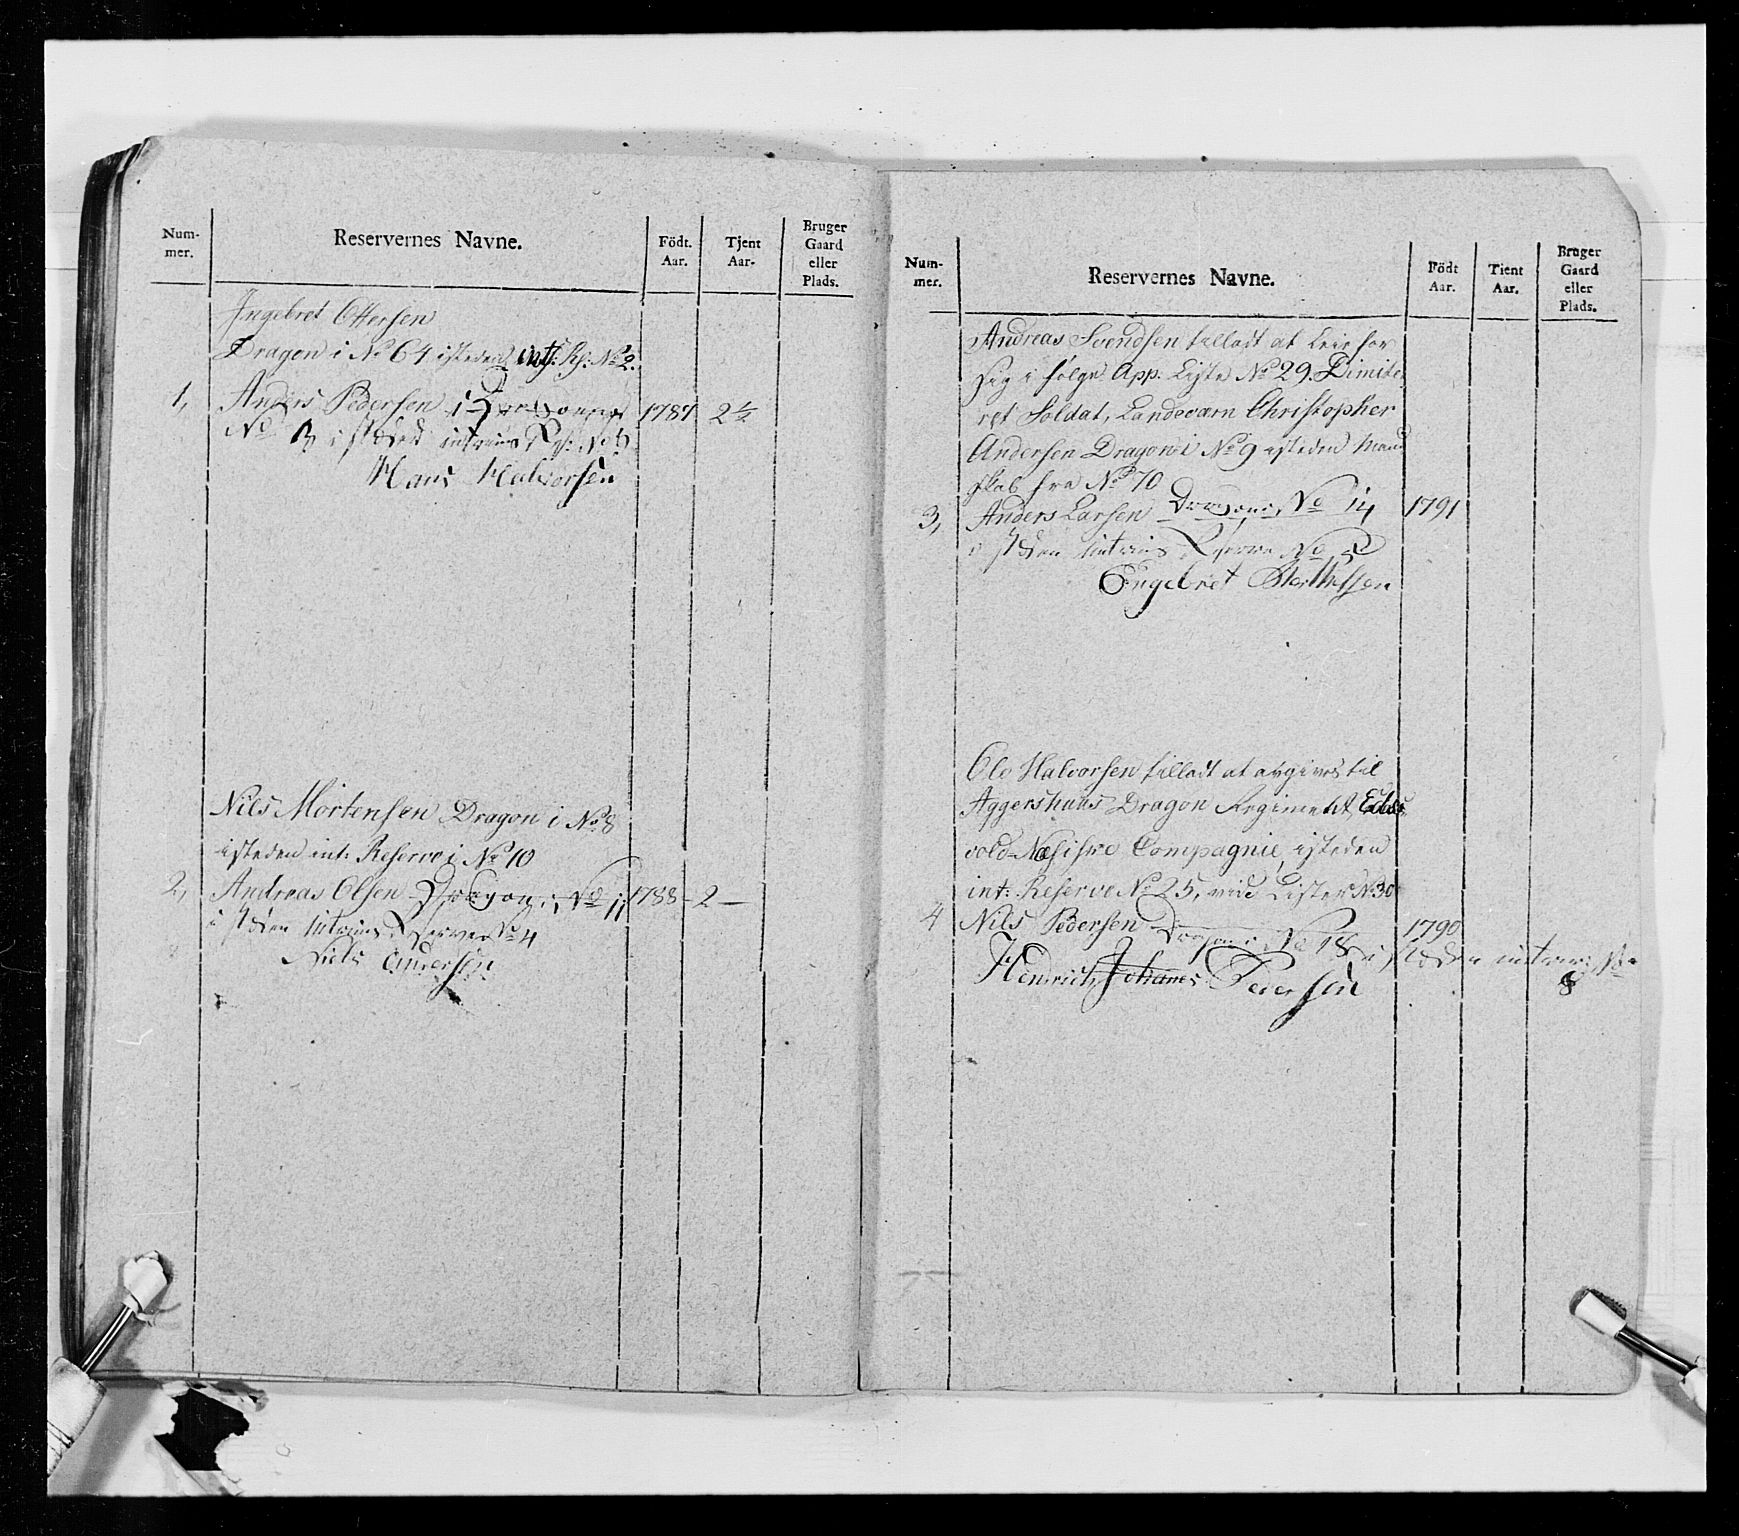 Num-
mer.
Reservernes Navne.
Födt.
Aar.
Tjent
Aar.
Bruger
Gaard
eller
Plads.
Ingebret Ottersen
Dragon i No 64 isteden intr: Rs: No 2.
1, Anders Pedersen i 1787 2½
No i steden No
Hans Halvorsen
Nils Mortensen Dragon i No 8
isteden int: Reserve i No 10
2, Andreas Olsen Dragon i No 11 1788 - 2 -
i steden Reserve No 4
Niels Andersen
Num-
mer.
Reservernes Navne.
Födt
Aar.
Tient
Aar.
Bruger
Gaard
eller
Plads.
Andreas Svendsen tilladt at leie for
sig i følge App. Liste No 29. Dimite
ret Soldat, Landeværn Christopher
Andersen Dragon i No 9 isteden Mand
skab fra No 70
3, Anders Larsen Dragon i No 14 1791
i steden Reserve No 5
Engebret Berthelsen
Ole Halvorsen tilladt at avgives til
Aggershuus Dragon Regiment Eids
vold-Næsiske Compagnie, isteden
int: Reserve No 25, vide Listen No 30
4 Nils Pedersen Dragon i No 18 1790
i steden No
8
Hendrich Johannes Pedersen